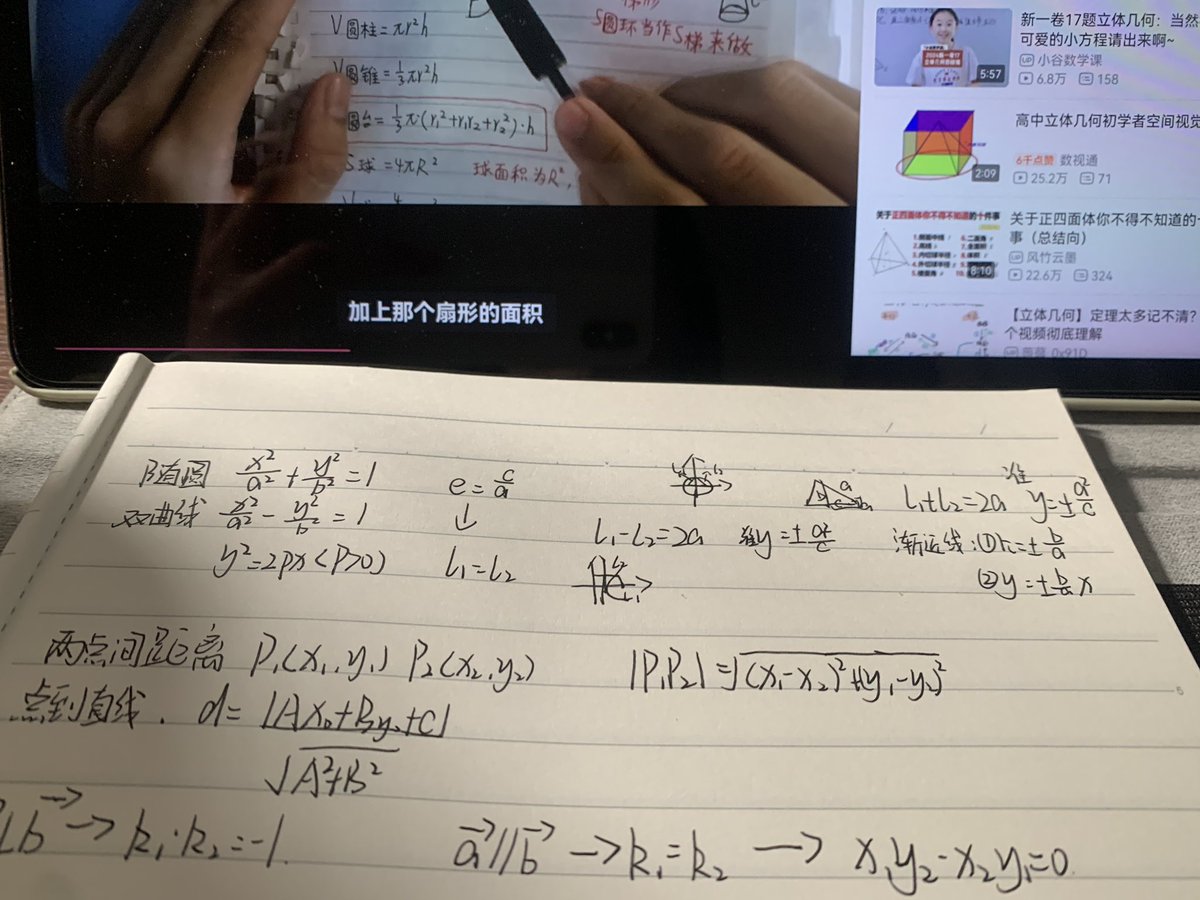 V圆柱=πr²h
S圆环当作S梯来做
V圆锥=⅓πr²h
圆台=⅓π(r₁²+r₁r₂+r₂²)·h
S球=4πR²
球面积为R²,
加上那个扇形的面积
新一卷17题立体几何：当然
可爱的小方程请出来啊~
UP 小谷数学课
6.8万 158
5:57
高中立体几何初学者空间视觉
6千点赞 数视通
25.2万 71
2:09
关于正四面体你不得不知道的十件事
8:10
关于正四面体你不得不知道的十
事（总结向）
UP 风竹云墨
22.6万 324
【立体几何】定理太多记不清？
个视频彻底理解
椭圆 x²/a²+y²/b²=1
e=c/a
L₁+L₂=2a
准 y=±a²/c
双曲线 x²/a²-y²/b²=1
↓
L₁-L₂=2a
准y=±a²/c
渐近线:①k=±b/a
y²=2px(P>0)
L₁=L₂
②y=±b/a x
两点间距离 P₁(x₁,y₁) P₂(x₂,y₂) |P₁P₂|=√(x₁-x₂)²+(y₁-y₂)²
点到直线. d=|Ax₀+By₀+C|
√A²+B²
⊥b→ → k₁·k₂=-1.
a→//b→ → k₁=k₂ → x₁y₂-x₂y₁=0.